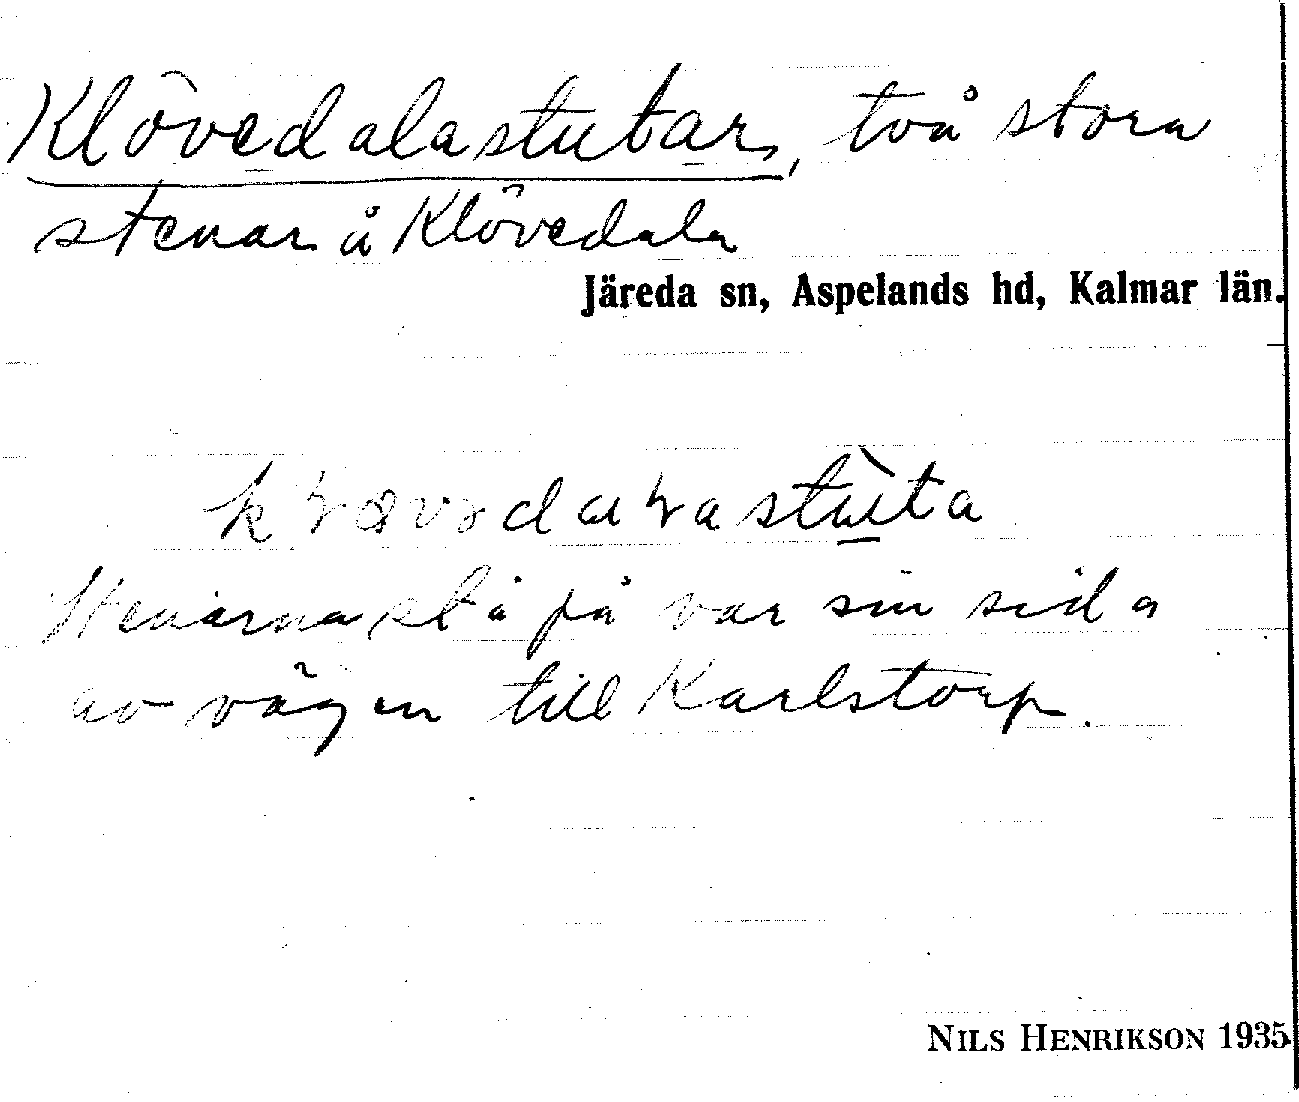 Klövedalastutar, två stora
stenar å Klövedala
Järeda sn, Aspelands hd, Kalmar län.
Stenarna stå på var sin sida
av vägen till Karlstorp.
NILS HENRIKSON 1935